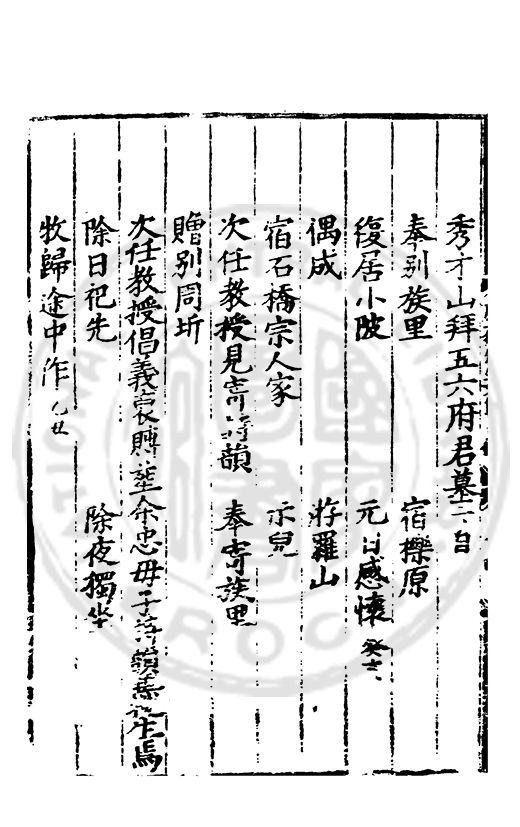 秀才山拜五六府君墓二首
奉別族里　宿櫟原
復居小陂　元日感懷
偶成　羅山
宿石橋宗人家　示兒
次任教授見寄詩韻　奉寄族里
贈別周圻
次任教授倡義裒賻葬余忠毋子詩韻
除日祀先　除夜獨坐
牧歸途中作